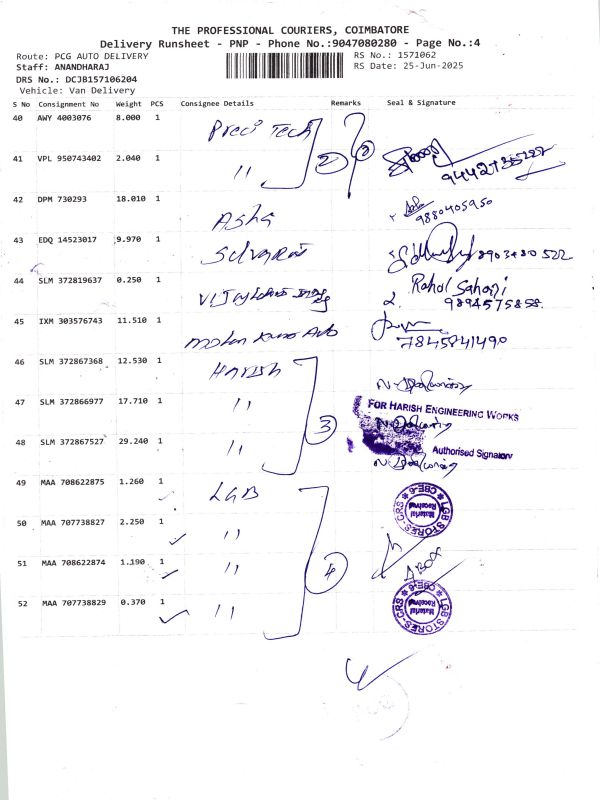 THE PROFESSIONAL COURIERS, COIMBATORE
Delivery Runsheet - PNP - Phone No.:9047080280 - Page No.:4
Route: PCG AUTO DELIVERY
RS No.: 1571062
Staff: ANANDHARAJ
RS Date: 25-Jun-2025
DRS No.: DCJB157106204
Vehicle: Van Delivery
S No Consignment No Weight PCS Consignee Details Remarks Seal & Signature
40 AWY 4003076 8.000 1 Preci Tech
41 VPL 950743402 2.040 1 〃 2
42 DPM 730293 18.010 1 Asha 9880405950
43 EDQ 14523017 9.970 1
44 SLM 372819637 0.250 1 Rahol Sahani
9894575858
45 IXM 303576743 11.510 1 7845841490
46 SLM 372867368 12.530 1 Harish
47 SLM 372866977 17.710 1 〃 3
FOR HARISH ENGINEERING WORKS
48 SLM 372867527 29.240 1 〃
Authorised Signatory
49 MAA 708622875 1.260 1 LGB
LGB STORES-CRS CBE-6 Material Received
50 MAA 707738827 2.250 1 〃
51 MAA 708622874 1.190 1 〃 4
52 MAA 707738829 0.370 1 〃
LGB STORES-CRS CBE-6 Material Received